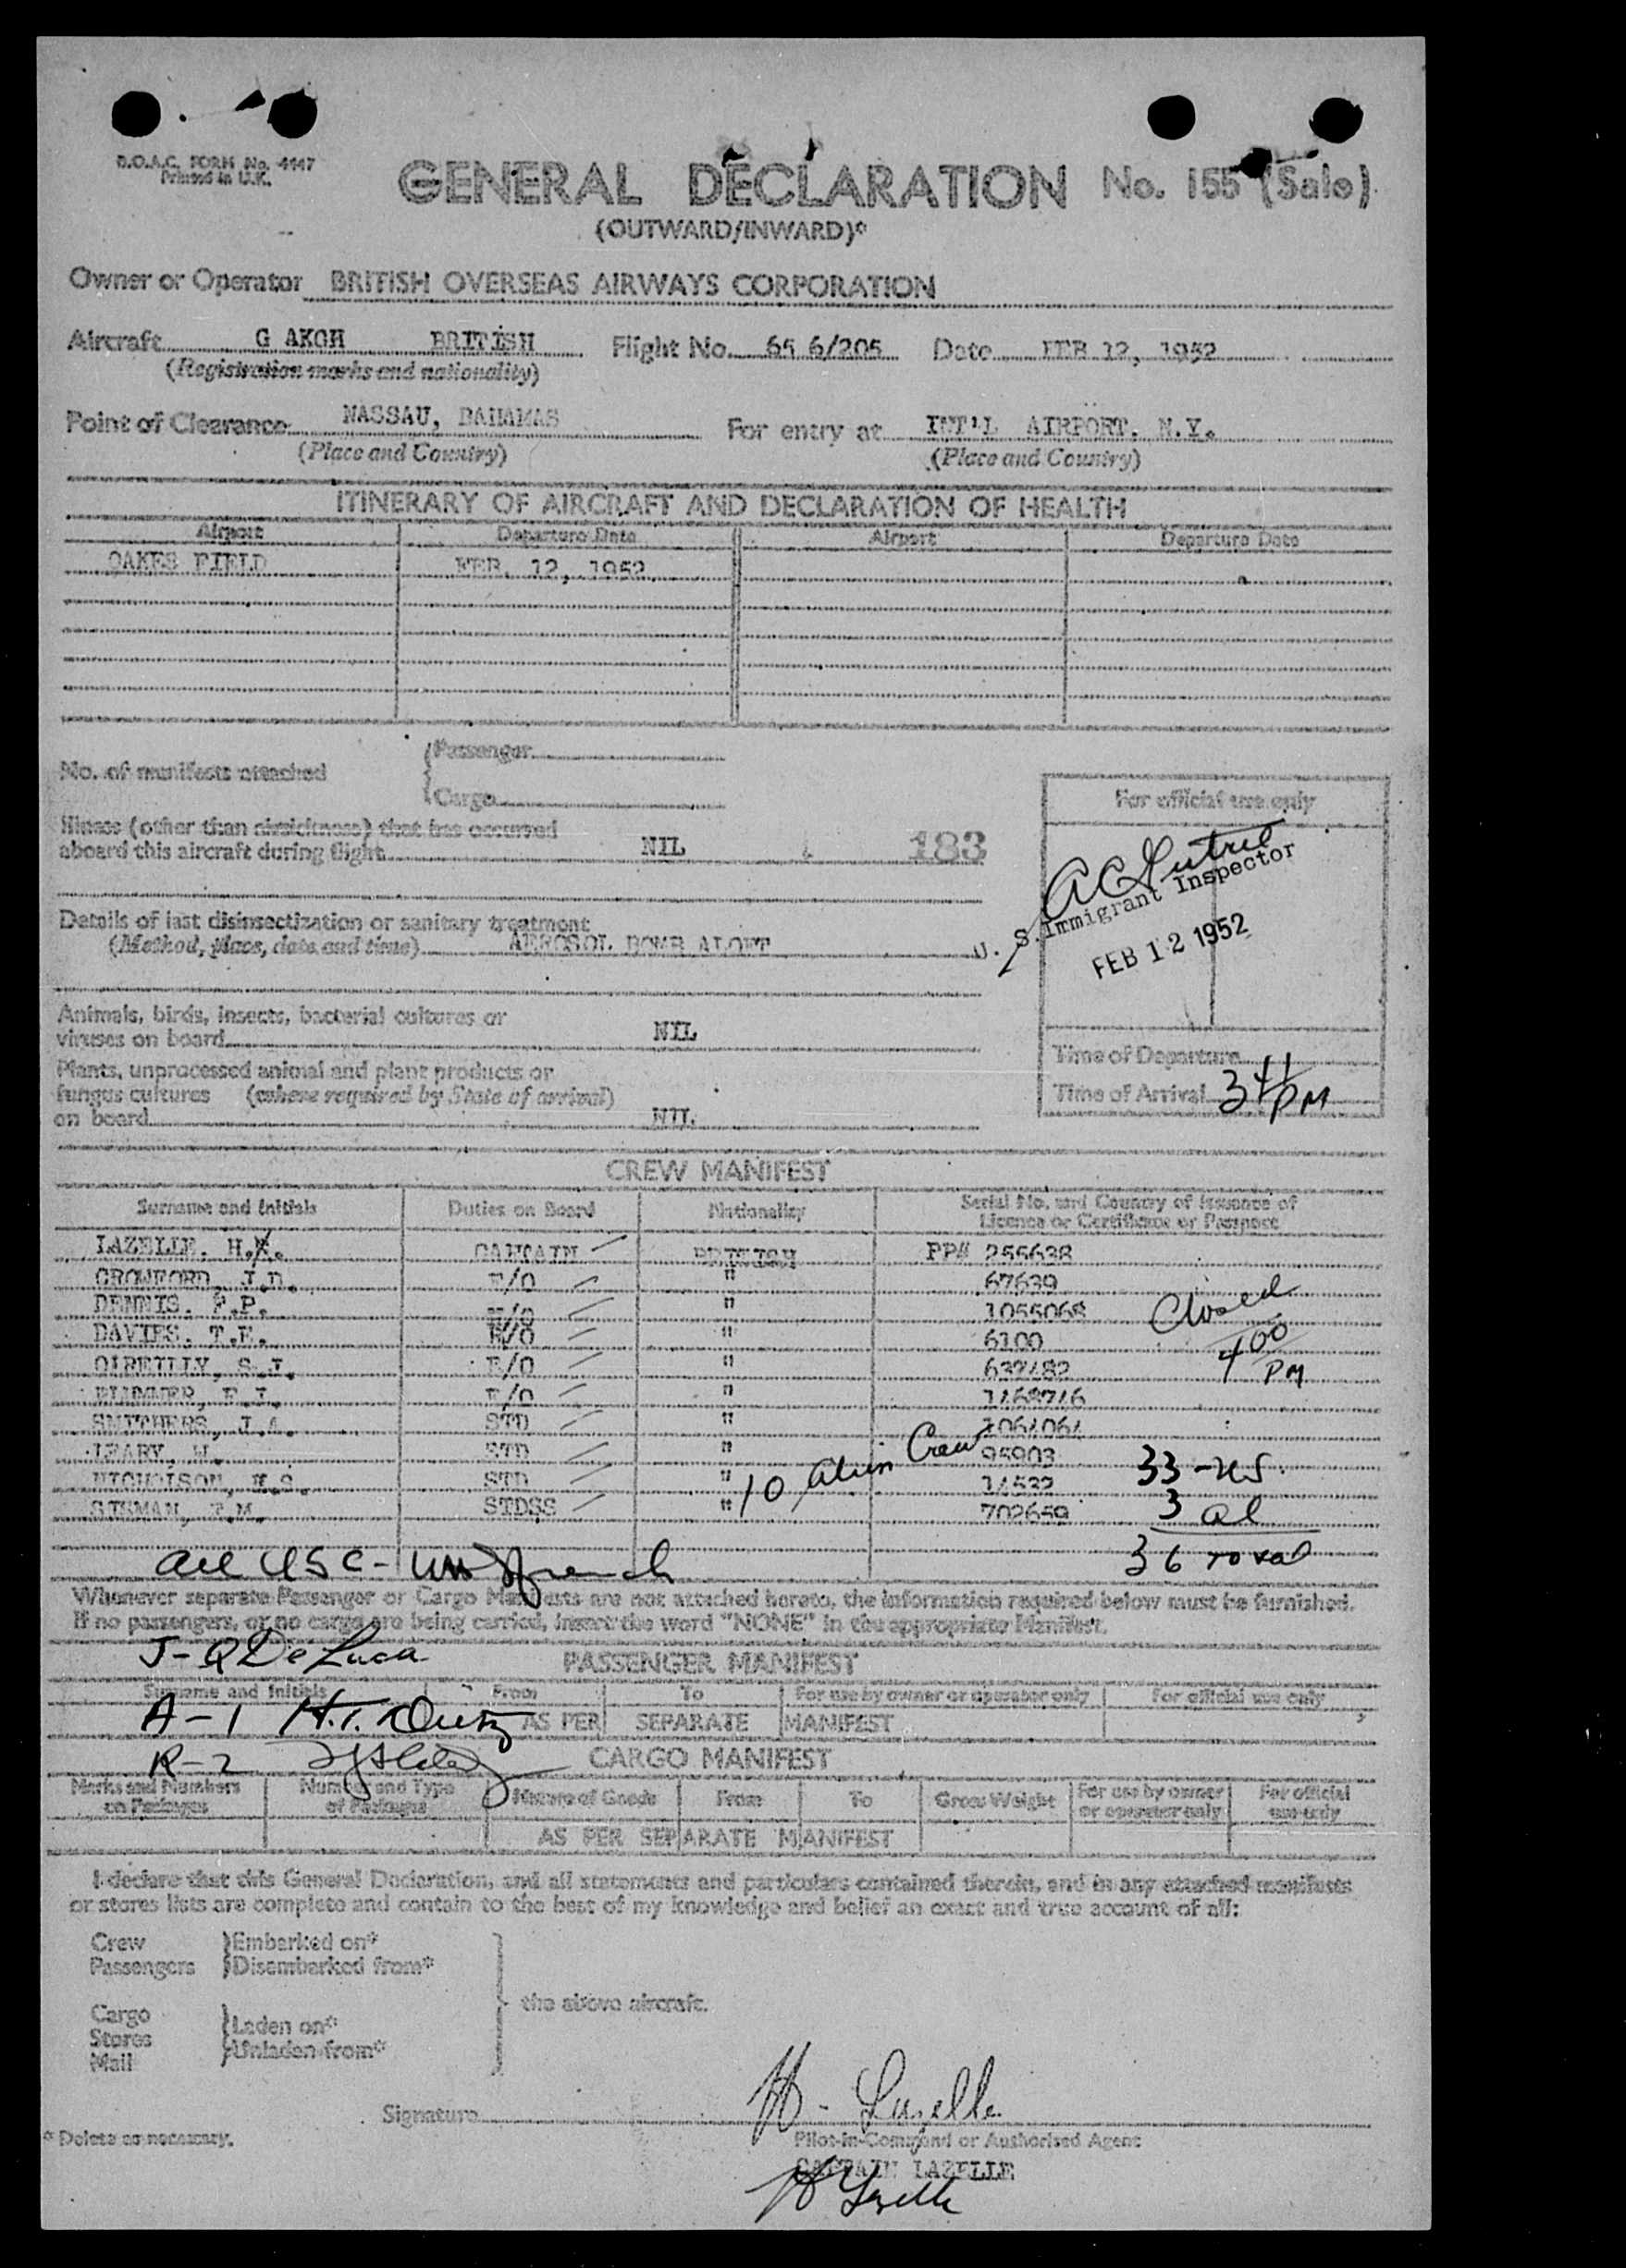 B.O.A.C. FORM No. 4447
Printed in U.K.
GENERAL DECLARATION No. 155 (Sale)
(OUTWARD/INWARD)*
Owner or Operator BRITISH OVERSEAS AIRWAYS CORPORATION
Aircraft G AKGH BRITISH Flight No. 65 6/205 Date FEB 12, 1952
(Registration marks and nationality)
Point of Clearance NASSAU, BAHAMAS For entry at INT'L AIRPORT, N.Y.
(Place and Country) (Place and Country)
ITINERARY OF AIRCRAFT AND DECLARATION OF HEALTH
Airport Departure Date Airport Departure Date
OAKES FIELD FEB. 12, 1952
No. of manifests attached Passenger
Cargo
For official use only
Illness (other than airsickness) that has occurred
aboard this aircraft during flight NIL 183
U. S. Immigrant Inspector
FEB 12 1952
Details of last disinsectization or sanitary treatment
(Method, place, date and time) AEROSOL BOMB ALOFT
Animals, birds, insects, bacterial cultures or
viruses on board NIL
Time of Departure
Plants, unprocessed animal and plant products or
fungus cultures (where required by State of arrival)
on board NIL
Time of Arrival 3 41 PM
CREW MANIFEST
Surname and Initials Duties on Board Nationality Serial No. and Country of Issuance of
Licence or Certificate or Passport
LAZELLE, H. CAPTAIN BRITISH PP# 255638
CROWFORD, J.D. F/O " 67639
DENNIS, P.P. " 1055068
Closed
DAVIES, T.E. R/O " 6100
400 PM
O'REILLY, S.J. E/O " 637482
E/O " 1468746
SMITHERS, J.A. STD " 1064064
LEARY, W. STD " 95903
10 alien Crew
33 - US
NICHOLSON, STD " 14532
3 al
SISMAN, STDSS " 702659
36 total
all USC -
Whenever separate Passenger or Cargo Manifests are not attached hereto, the information required below must be furnished.
If no passengers, or no cargo are being carried, insert the word "NONE" in the appropriate Manifest.
J - Q DeLuca
PASSENGER MANIFEST
Surname and Initials From To For use by owner or operator only For official use only
A - 1 H.T.
AS PER SEPARATE MANIFEST
R - 2
CARGO MANIFEST
Marks and Numbers on Packages Number and Type of Packages Nature of Goods From To Gross Weight For use by owner or operator only For official use only
AS PER SEPARATE MANIFEST
I declare that this General Declaration, and all statements and particulars contained therein, and in any attached manifests
or stores lists are complete and contain to the best of my knowledge and belief an exact and true account of all:
Crew Embarked on*
Passengers Disembarked from*
the above aircraft.
Cargo
Stores Laden on*
Mail Unladen from*
Signature H - Lazelle
* Delete as necessary.
Pilot-in-Command or Authorised Agent
CAPTAIN LAZELLE
H Lazelle